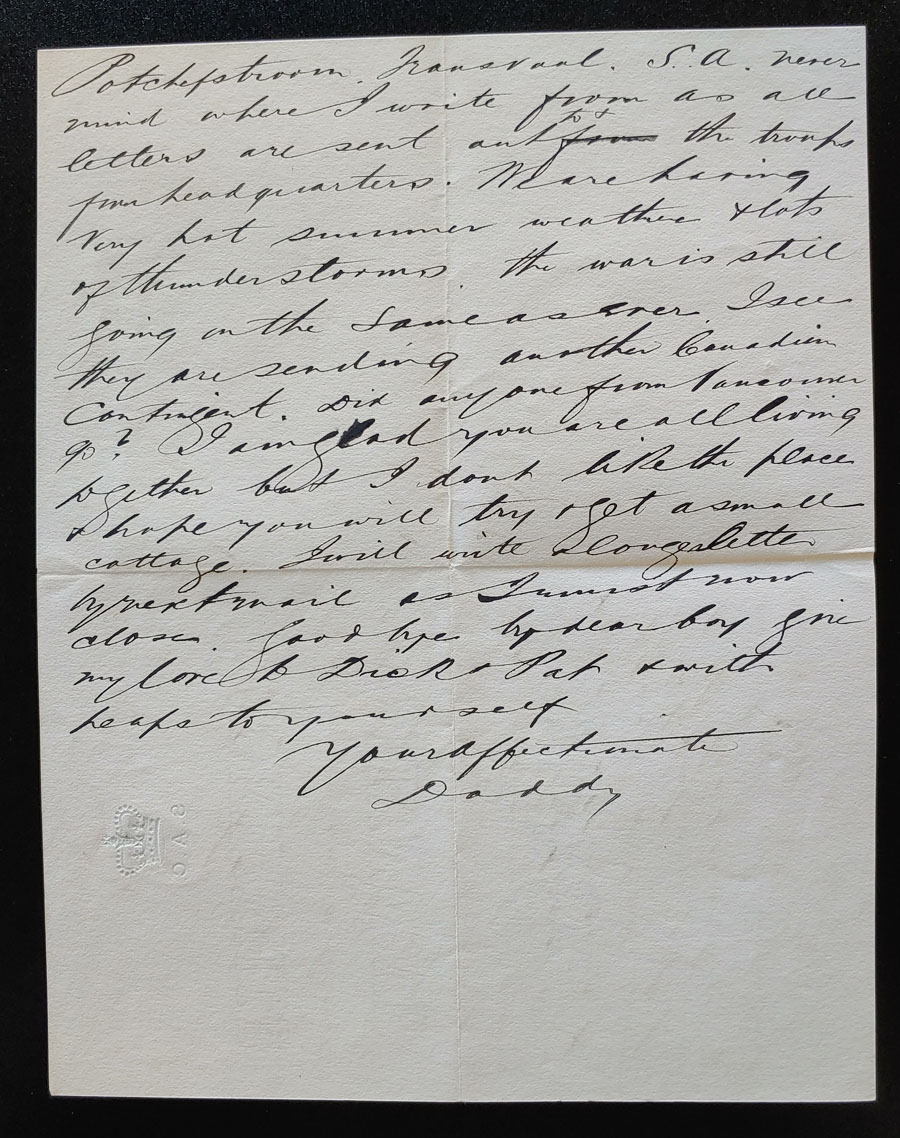 Potchefstroom. Transvaal. S.A. never
mind where I write from as all
letters are sent out to ~~from~~ the troops
from headquarters. We are having
Very hot summer weather & lots
of thunderstorms. the war is still
going on the same as ever. I see
they are sending another Canadian
Contingent. Did any one from Vancouver
go? I am glad you are all living
together but I dont like the place
& hope you will try & get a small
cottage. I will write a longer letter
by next mail as I must now
close. Good bye my dear boy give
my love to Dick & Pat & with
heaps to yourself
Your Affectionate
Daddy
S A C